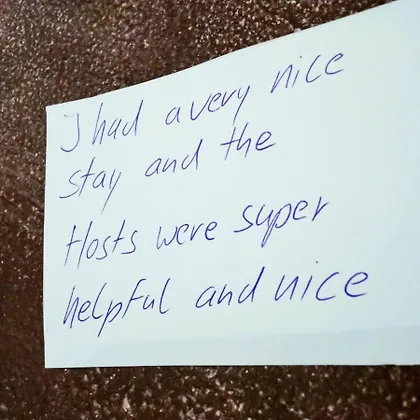 I had a very nice
stay and the
Hosts were super
helpful and nice